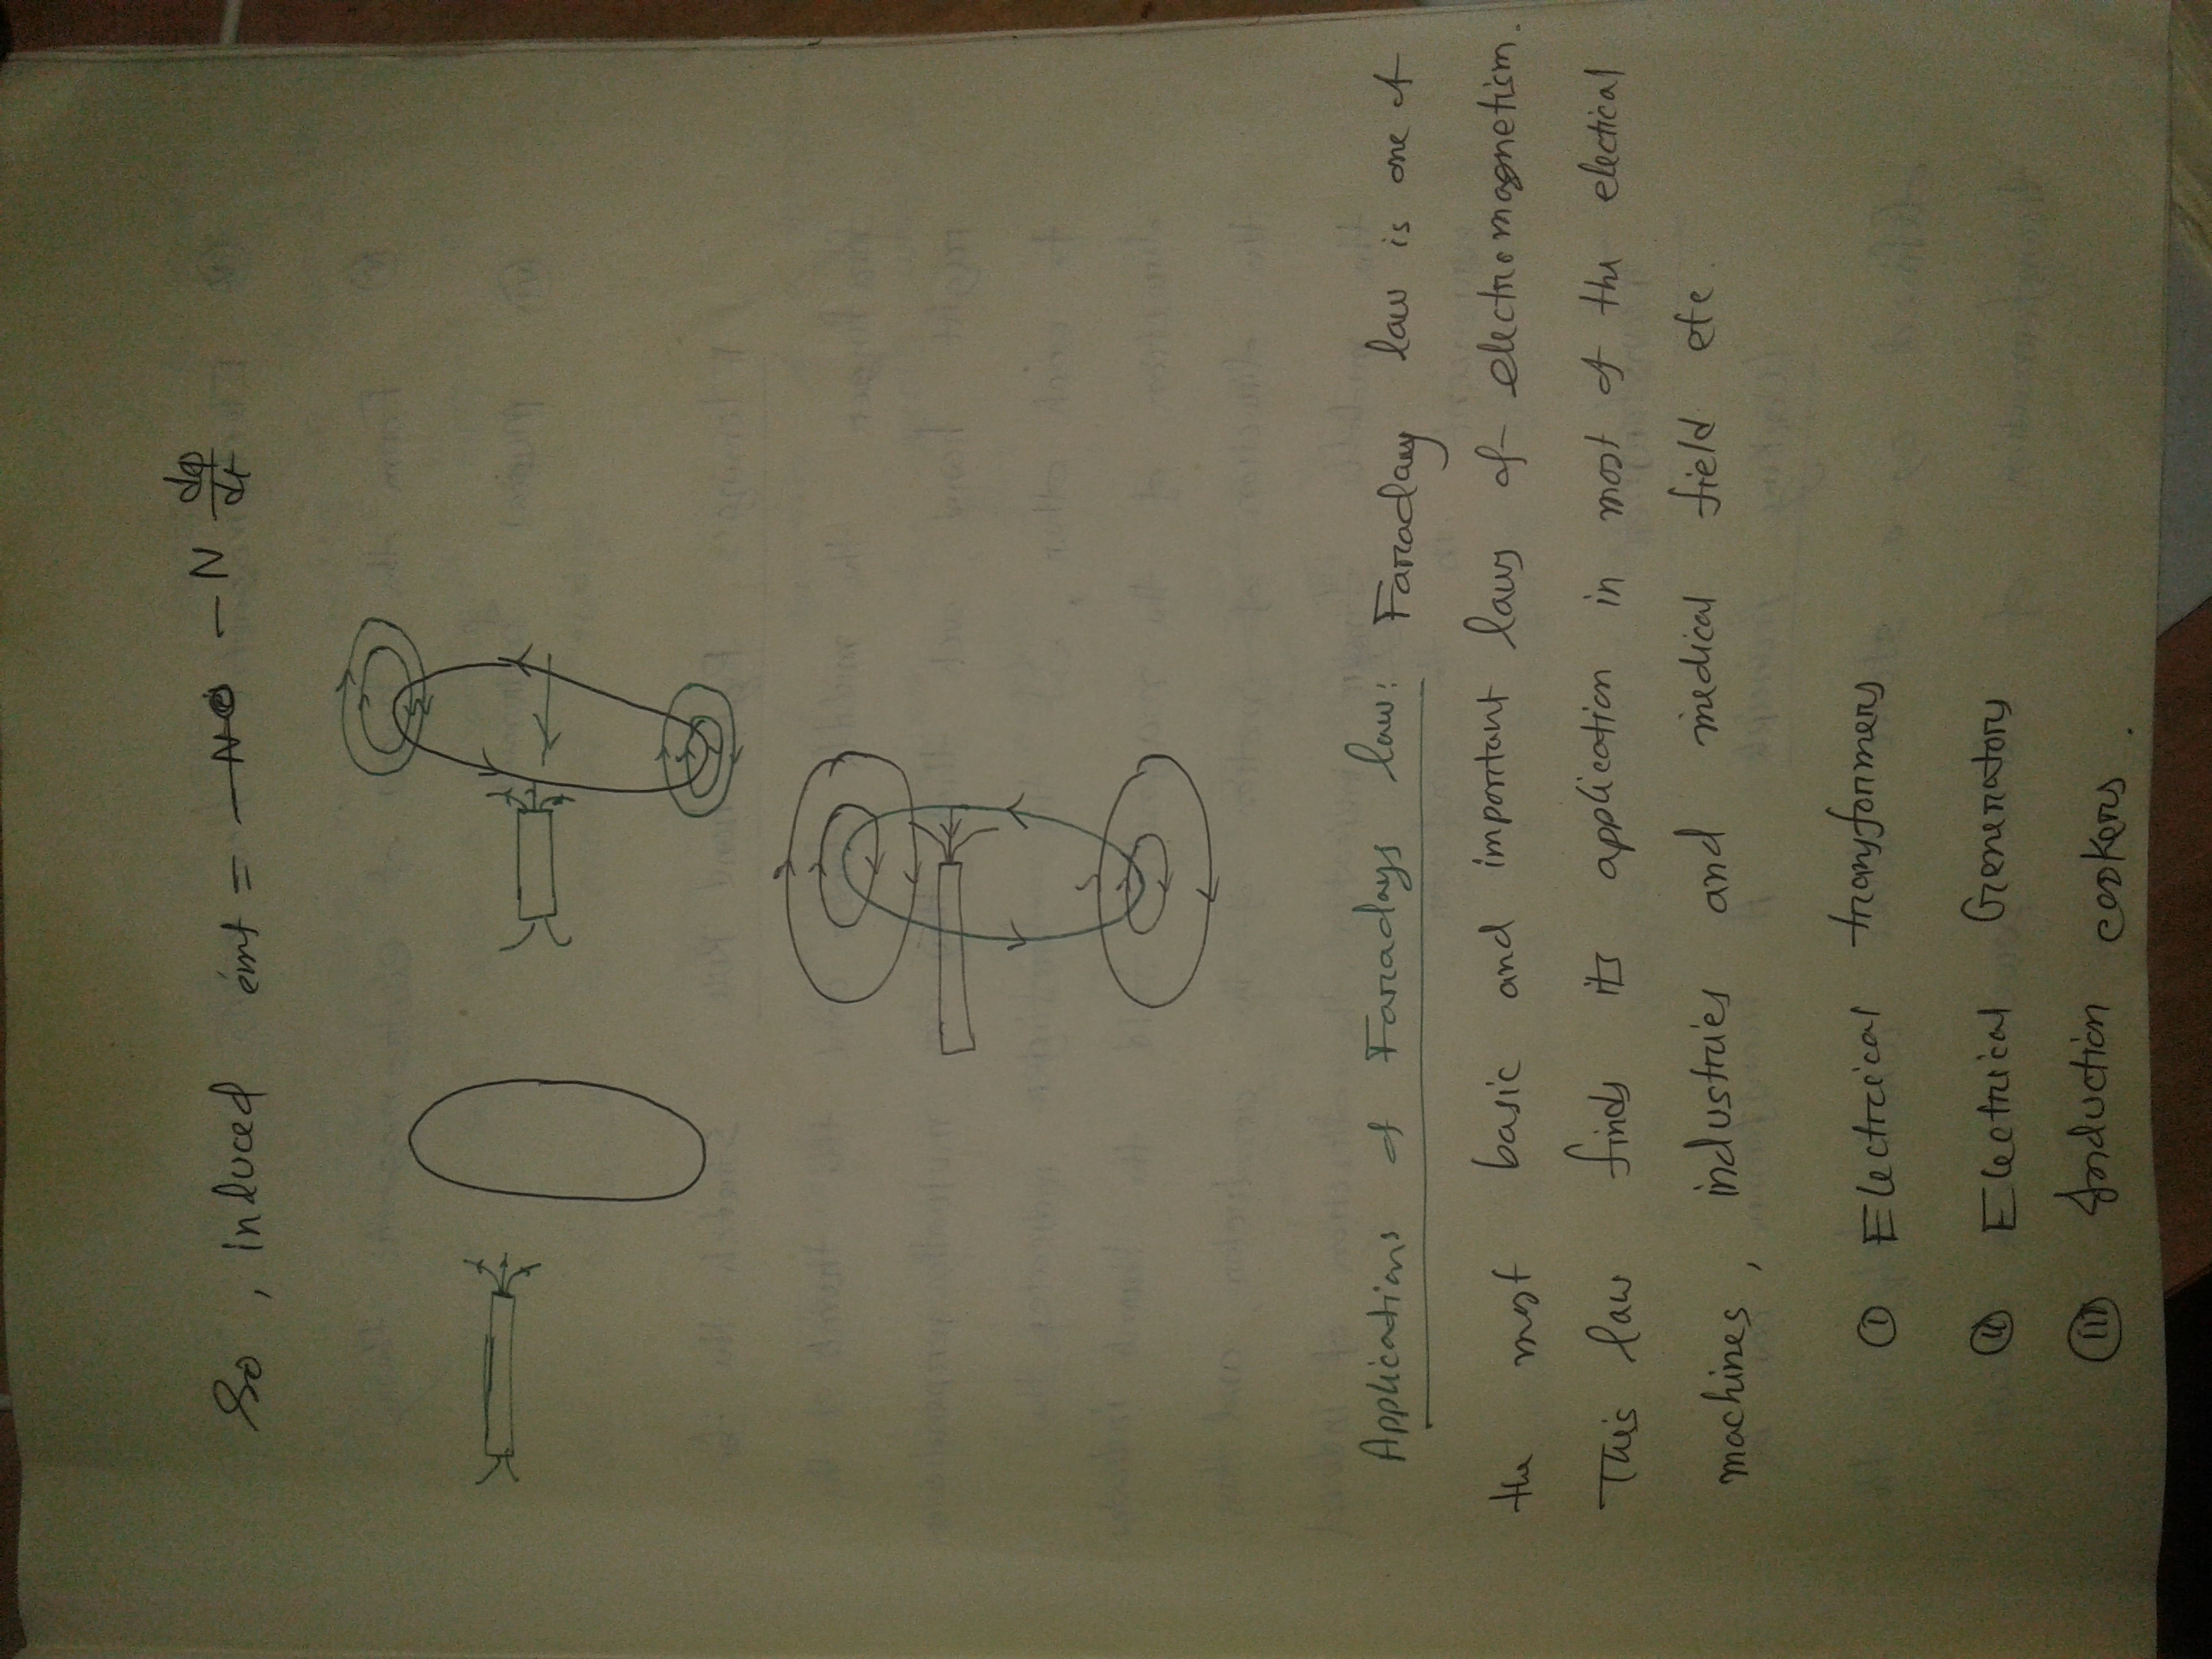 So, induced emf = - N dφ/dt
Applications of Faradays law: Farraday law is one of
the most basic and important laws of electromagnetism.
This law finds its application in most of the electical
machines, industries and medical field etc.
(i) Electrical transformers
(ii) Electrical Generators
(iii) Induction cookers.